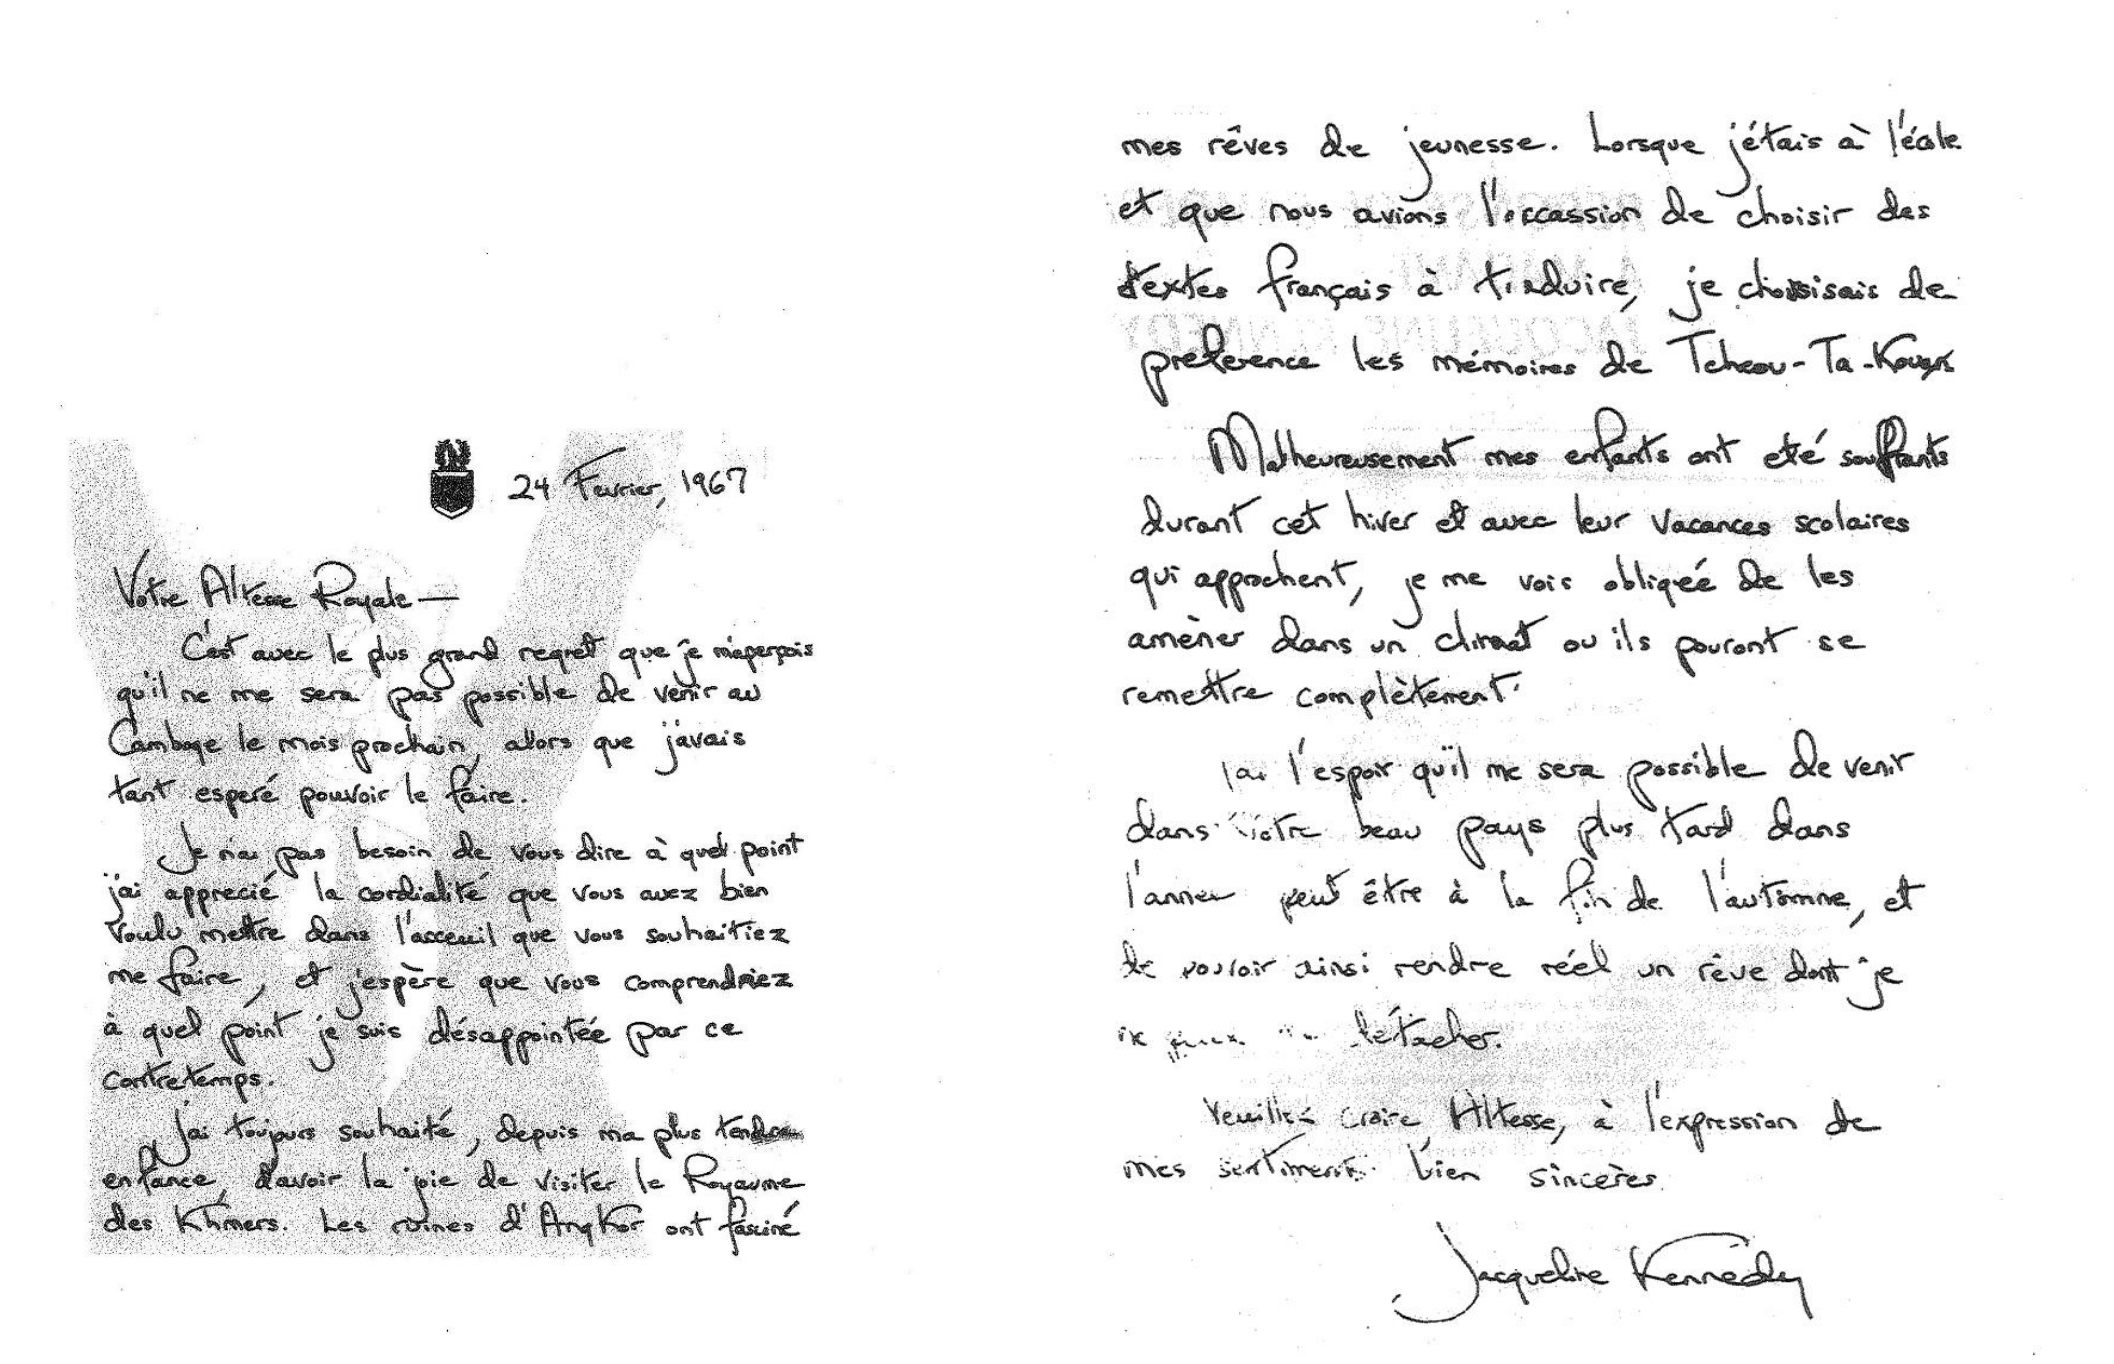 24 Fevrier, 1967
Votre Altesse Royale —
C'est avec le plus grand regret que je m'aperçois
qu'il ne me sera pas possible de venir au
Camboge le mois prochain, alors que j'avais
tant esperé pouvoir le faire.
Je n'ai pas besoin de vous dire à quel point
j'ai apprecié la cordialité que vous avez bien
voulu mettre dans l'acceuil que vous souhaitiez
me faire, et j'espère que vous comprendriez
à quel point je suis désappointée par ce
contretemps.
J'ai toujours souhaité, depuis ma plus tendre
enfance, d'avoir la joie de visiter le Royaume
des Khmers. Les ruines d'Angkor ont fasciné
mes rêves de jeunesse. Lorsque j'étais à l'école
et que nous avions l'occassion de choisir des
textes français à traduire, je choisisais de
preference les mémoires de Tcheou-Ta-Kouan
Malheureusement mes enfants ont eté souffrants
durant cet hiver et avec leur vacances scolaires
qui approchent, je me vois obligée de les
amèner dans un climat ou ils pouront se
remettre complètement.
J'ai l'espoir qu'il me sera possible de venir
dans votre beau pays plus tard dans
l'anneé peut être à la fin de l'automne, et
de pouvoir ainsi rendre réel un rêve dont je
ne peux me détacher.
Veuillez croire Altesse, à l'expression de
mes sentiments bien sincères
Jacqueline Kennedy